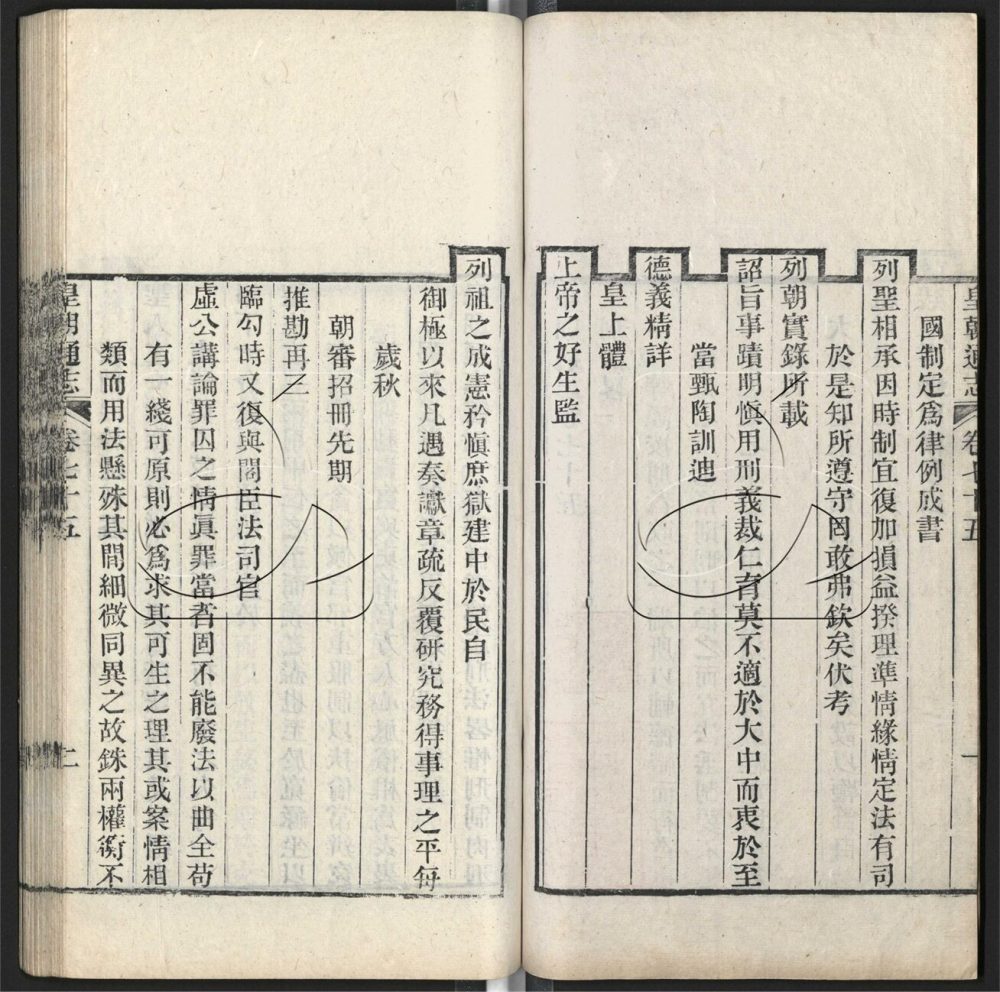 皇朝通志 卷七十五 一
國制定爲律例成書
列聖相承因時制宜復加損益揆理準情緣情定法有司
於是知所遵守罔敢弗欽矣伏考
列朝實錄所載
詔旨事蹟明愼用刑義裁仁育莫不適於大中而衷於至
當甄陶訓迪
德義精詳
皇上體
上帝之好生監
列祖之成憲矜愼庶獄建中於民自
御極以來凡遇奏讞章疏反覆研究務得事理之平每
歲秋
朝審招冊先期
推勘再三
臨勾時又復與閣臣法司官
虛公講論罪囚之情眞罪當者固不能廢法以曲全苟
有一綫可原則必爲求其可生之理其或案情相
類而用法懸殊其間細微同異之故銖兩權衡不
皇朝通志 卷七十五 二